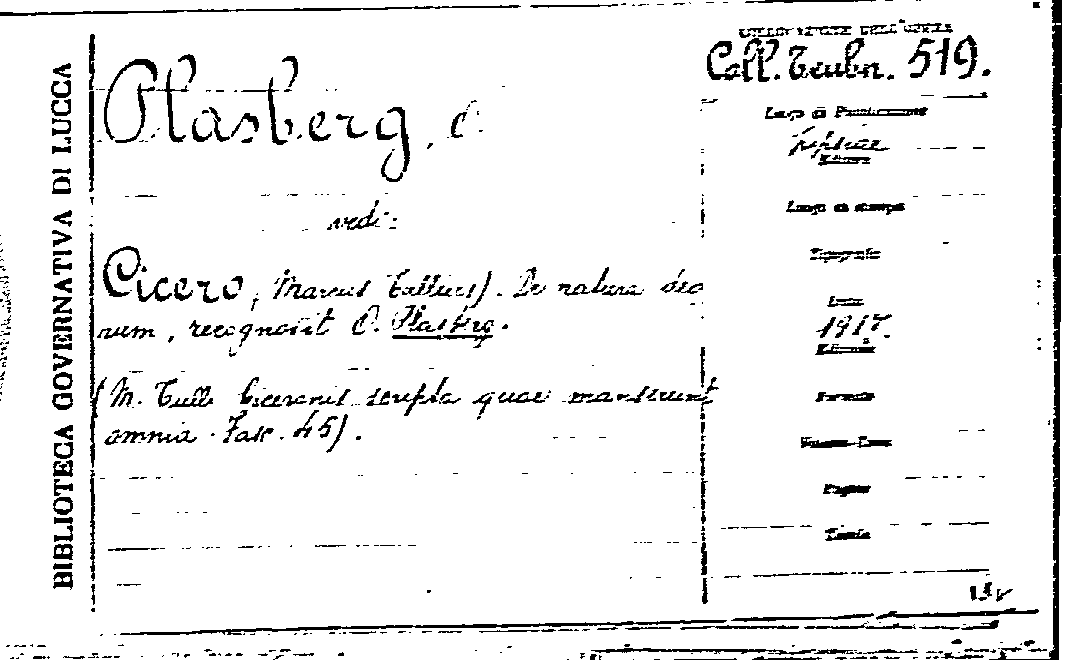 BIBLIOTECA GOVERNATIVA DI LUCCA
Plasberg, O.
vedi:
Cicero, Marcus Tullius). De natura deo
rum, recognovit O. Plasberg.
(M. Tulli Ciceronis scripta quae manserunt
omnia. Fasc. 45).
COLLOCAZIONE DELL'OPERA
Coll. Teubn. 519.
Luogo di Pubblicazione
Lipsiae
Editore
Luogo di stampa
Tipografia
Data
1917.
Edizione
Formato
Pagine
Tavole